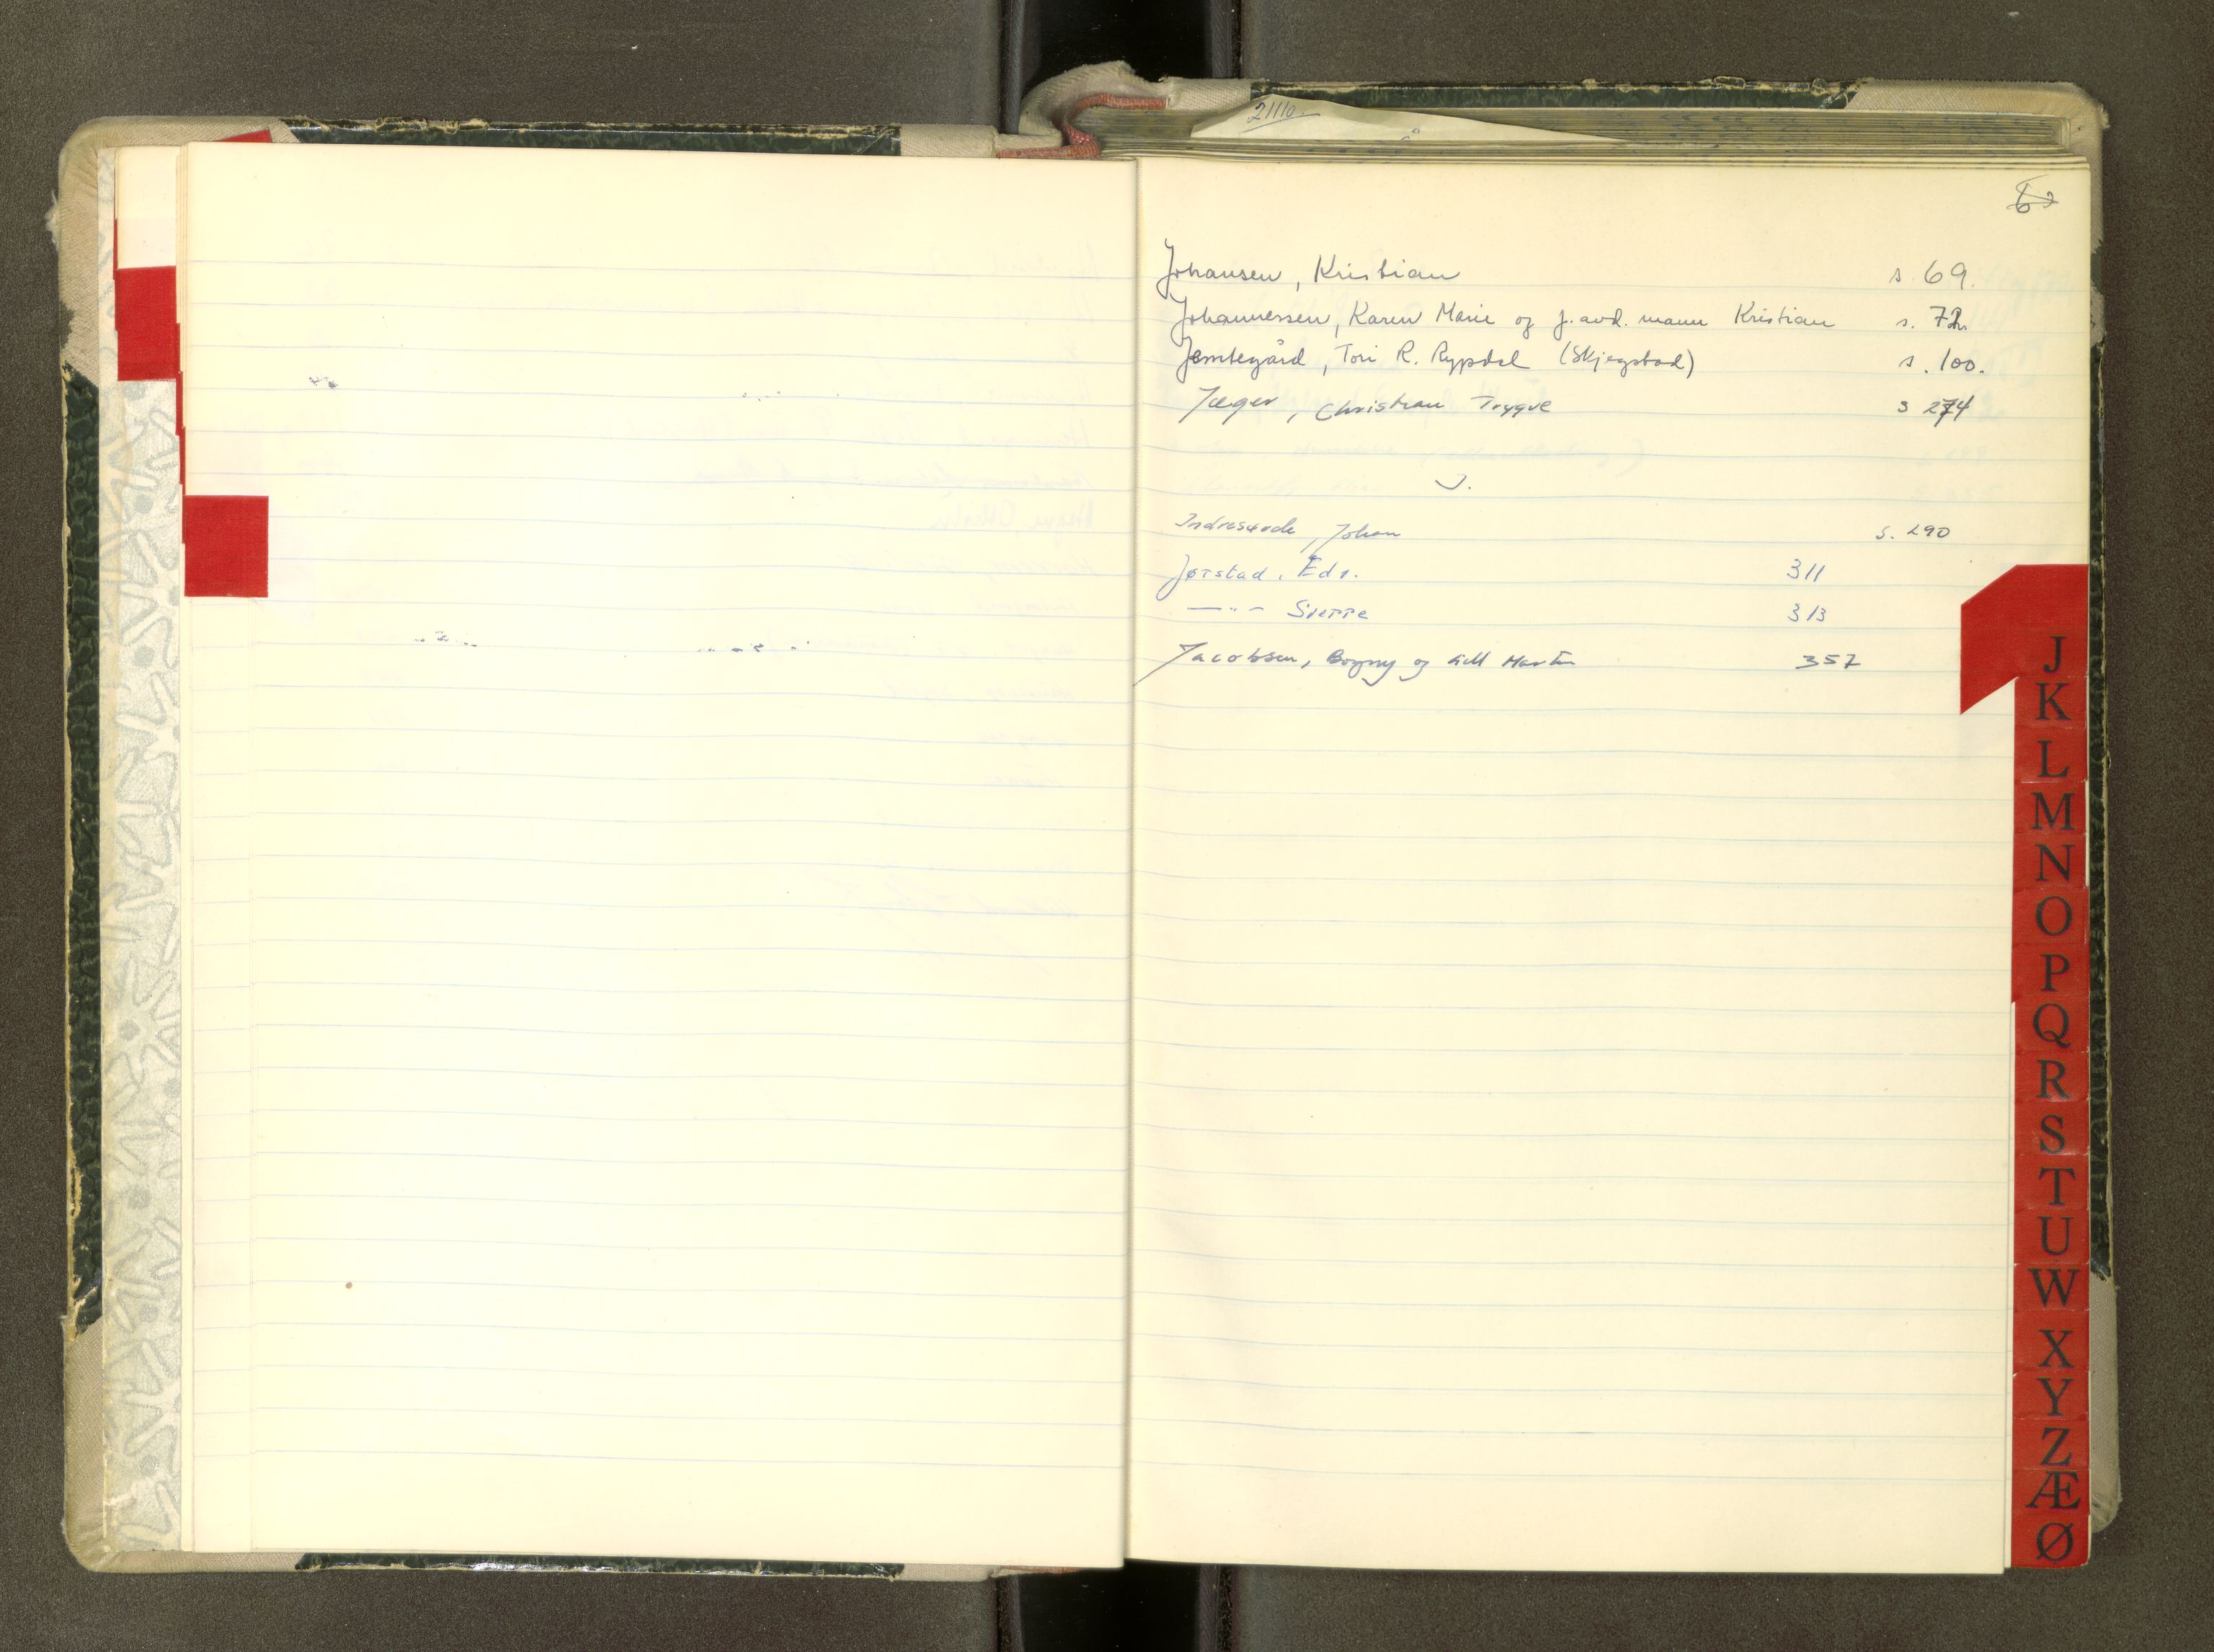 21110.
Johansen, Kristian s. 69.
Johannessen, Karen Marie og f. avd. mann Kristian s. 72.
Jemtegård, Tori R. Rypdal (Skjegstad) s. 100.
Jæger, Christian Trygve s 274
J.
Johan s. 290
Jørstad, Edv. 311
—"— Sverre 313
Jacobsen, Bogny og Kitt Martin 357
J
K
L
M
N
O
P
Q
R
S
T
U
W
X
Y
Z
Æ
Ø